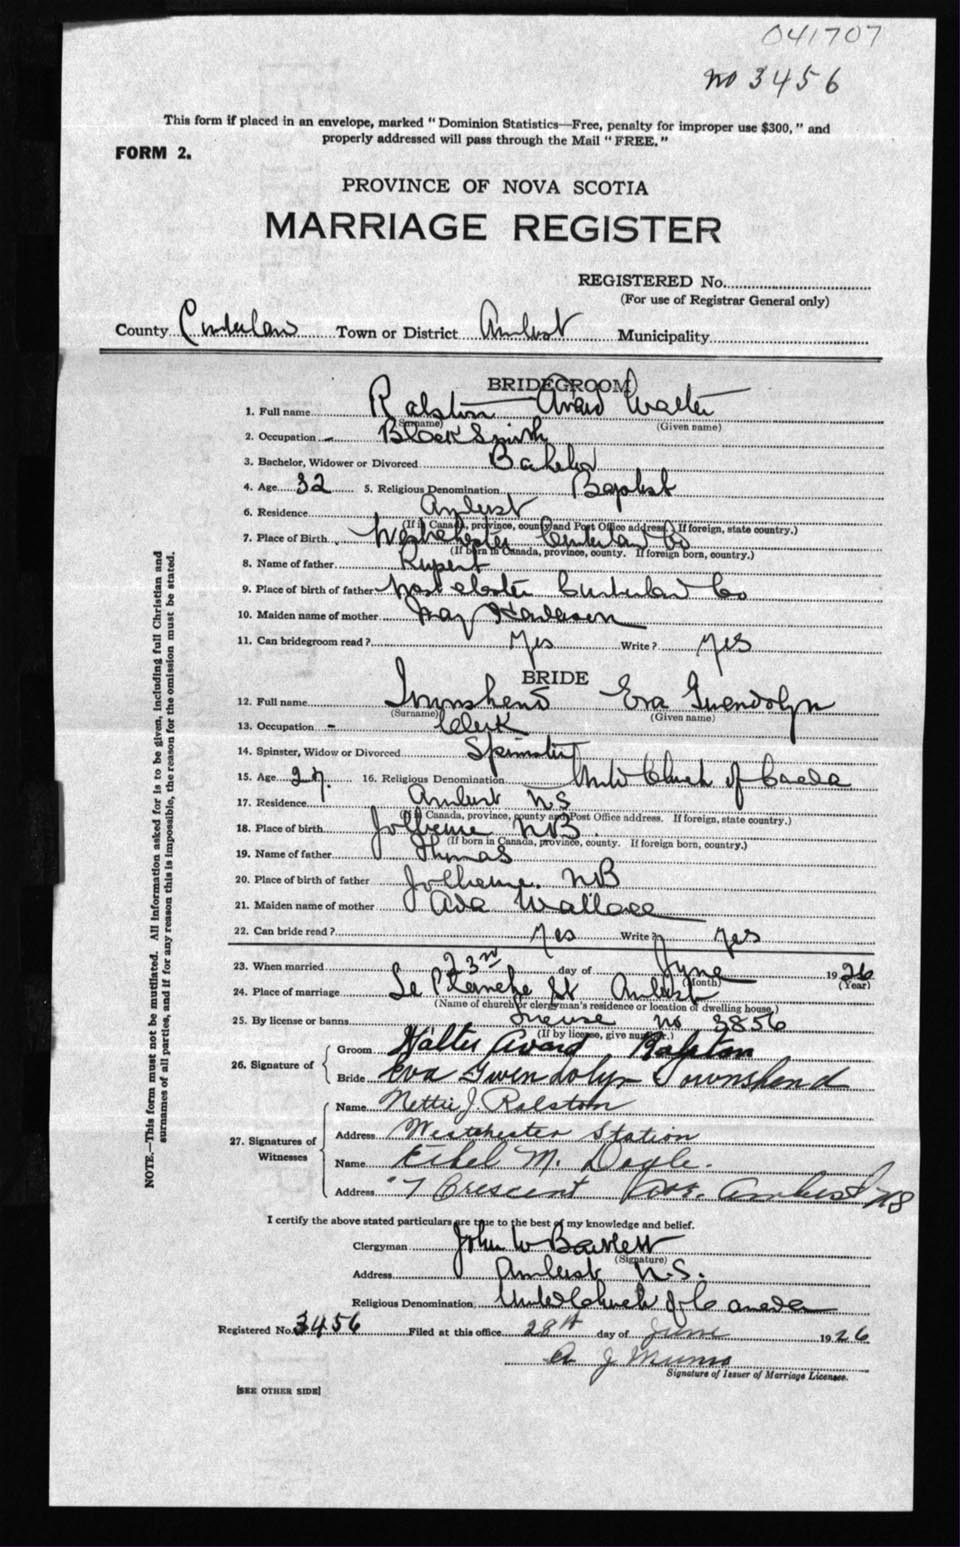 041707
no 3456
This form if placed in an envelope, marked "Dominion Statistics—Free, penalty for improper use $300," and
properly addressed will pass through the Mail "FREE."
FORM 2.
PROVINCE OF NOVA SCOTIA
MARRIAGE REGISTER
REGISTERED No.
(For use of Registrar General only)
County Cumberland Town or District Amherst Municipality
BRIDEGROOM
1. Full name Ralston Avard Walter
(Surname) (Given name)
2. Occupation Black Smith
3. Bachelor, Widower or Divorced Bachelor
4. Age 32 5. Religious Denomination Baptist
6. Residence Amherst
(If in Canada, province, county and Post Office address. If foreign, state country.)
7. Place of Birth Westchester Cumberland Co
(If born in Canada, province, county. If foreign born, country.)
8. Name of father Rupert
9. Place of birth of father Westchester Cumberland Co
10. Maiden name of mother
11. Can bridegroom read? Yes Write? Yes
BRIDE
12. Full name Townshend Eva Gwendolyn
(Surname) (Given name)
13. Occupation - Clerk
14. Spinster, Widow or Divorced Spinster
15. Age 27. 16. Religious Denomination United Church of Canada
17. Residence Amherst N S
(If in Canada, province, county and Post Office address. If foreign, state country.)
18. Place of birth Jolicure NB.
(If born in Canada, province, county. If foreign born, country.)
19. Name of father Thomas
20. Place of birth of father Jolicure. NB
21. Maiden name of mother Ada Wallace
22. Can bride read? Yes Write? Yes
23. When married 23rd day of June 1926
(Month) (Year)
24. Place of marriage La Planche St Amherst
(Name of church or clergyman's residence or location of dwelling house.)
25. By license or banns License no 3856
(If by license, give number.)
26. Signature of
Groom Walter Avard Ralston
Bride Eva Gwendolyn Townshend
27. Signatures of Witnesses
Name Nettie J. Ralston
Address Westchester Station
Name Ethel M. Doyle.
Address 7 Crescent Ave. Amherst NS
I certify the above stated particulars are true to the best of my knowledge and belief.
Clergyman John W Bartlett
(Signature)
Address Amherst N.S.
Religious Denomination United Church of Canada
Registered No. 3456 Filed at this office 28th day of June 1926
A J Munro
Signature of Issuer of Marriage Licenses.
[SEE OTHER SIDE]
NOTE.—This form must not be mutilated. All information asked for is to be given, including full Christian and
surnames of all parties, and if for any reason this is impossible, the reason for the omission must be stated.